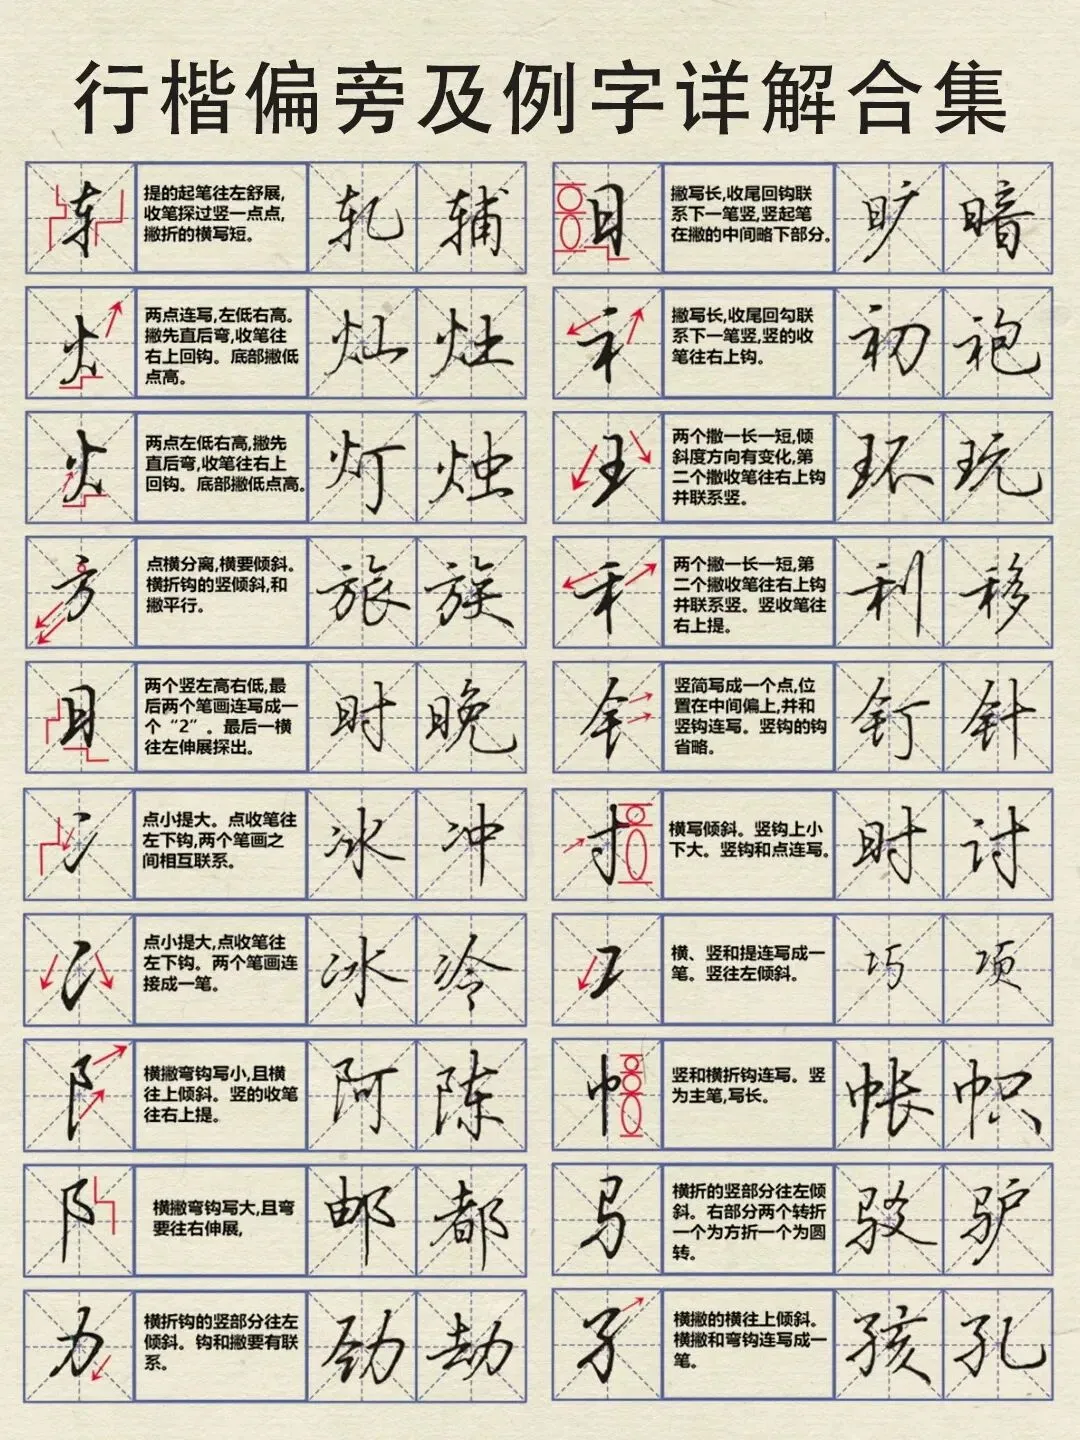 行楷偏旁及例字详解合集
车
提的起笔往左舒展,
收笔探过竖一点点,
撇折的横写短。
轧 辅
火
两点连写,左低右高。
撇先直后弯,收笔往
右上回钩。底部撇低
点高。
灿 灶
火
两点左低右高,撇先
直后弯,收笔往右上
回钩。底部撇低点高。
灯 烛
方
点横分离,横要倾斜。
横折钩的竖倾斜,和
撇平行。
旅 族
日
两个竖左高右低,最
后两个笔画连写成一
个“2”。最后一横
往左伸展探出。
时 晚
冫
点小提大。点收笔往
左下钩,两个笔画之
间相互联系。
冰 冲
冫
点小提大,点收笔往
左下钩。两个笔画连
接成一笔。
冰 冷
阝
横撇弯钩写小,且横
往上倾斜。竖的收笔
往右上提。
阿 陈
阝
横撇弯钩写大,且弯
要往右伸展,
邮 都
力
横折钩的竖部分往左
倾斜。钩和撇要有联
系。
劲 劫
日
撇写长,收尾回钩联
系下一笔竖,竖起笔
在撇的中间略下部分。
旷 暗
衤
撇写长,收尾回勾联
系下一笔竖,竖的收
笔往右上钩。
初 袍
王
两个撒一长一短,倾
斜度方向有变化,第
二个撒收笔往右上钩
并联系竖。
环 玩
禾
两个撇一长一短,第
二个撇收笔往右上钩
并联系竖。竖收笔往
右上提。
利 移
钅
竖简写成一个点,位
置在中间偏上,并和
竖钩连写。竖钩的钩
省略。
钉 针
寸
横写倾斜。竖钩上小
下大。竖钩和点连写。
时 讨
工
横、竖和提连写成一
笔。竖往左倾斜。
巧 项
巾
竖和横折钩连写。竖
为主笔,写长。
帐 帜
马
横折的竖部分往左倾
斜。右部分两个转折
一个为方折一个为圆
转。
驳 驴
子
横撇的横往上倾斜。
横撇和弯钩连写成一
笔。
孩 孔